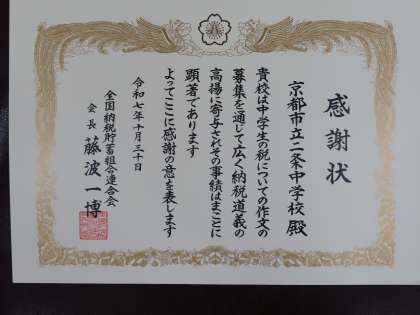 感謝状
京都市立二条中学校 殿
貴校は中学生の税についての作文の
募集を通じて広く納税道義の
高揚に寄与されその事績はまことに
顕著であります
よってここに感謝の意を表します
令和七年十月三十日
全国納税貯蓄組合連合会
会長 藤波一博